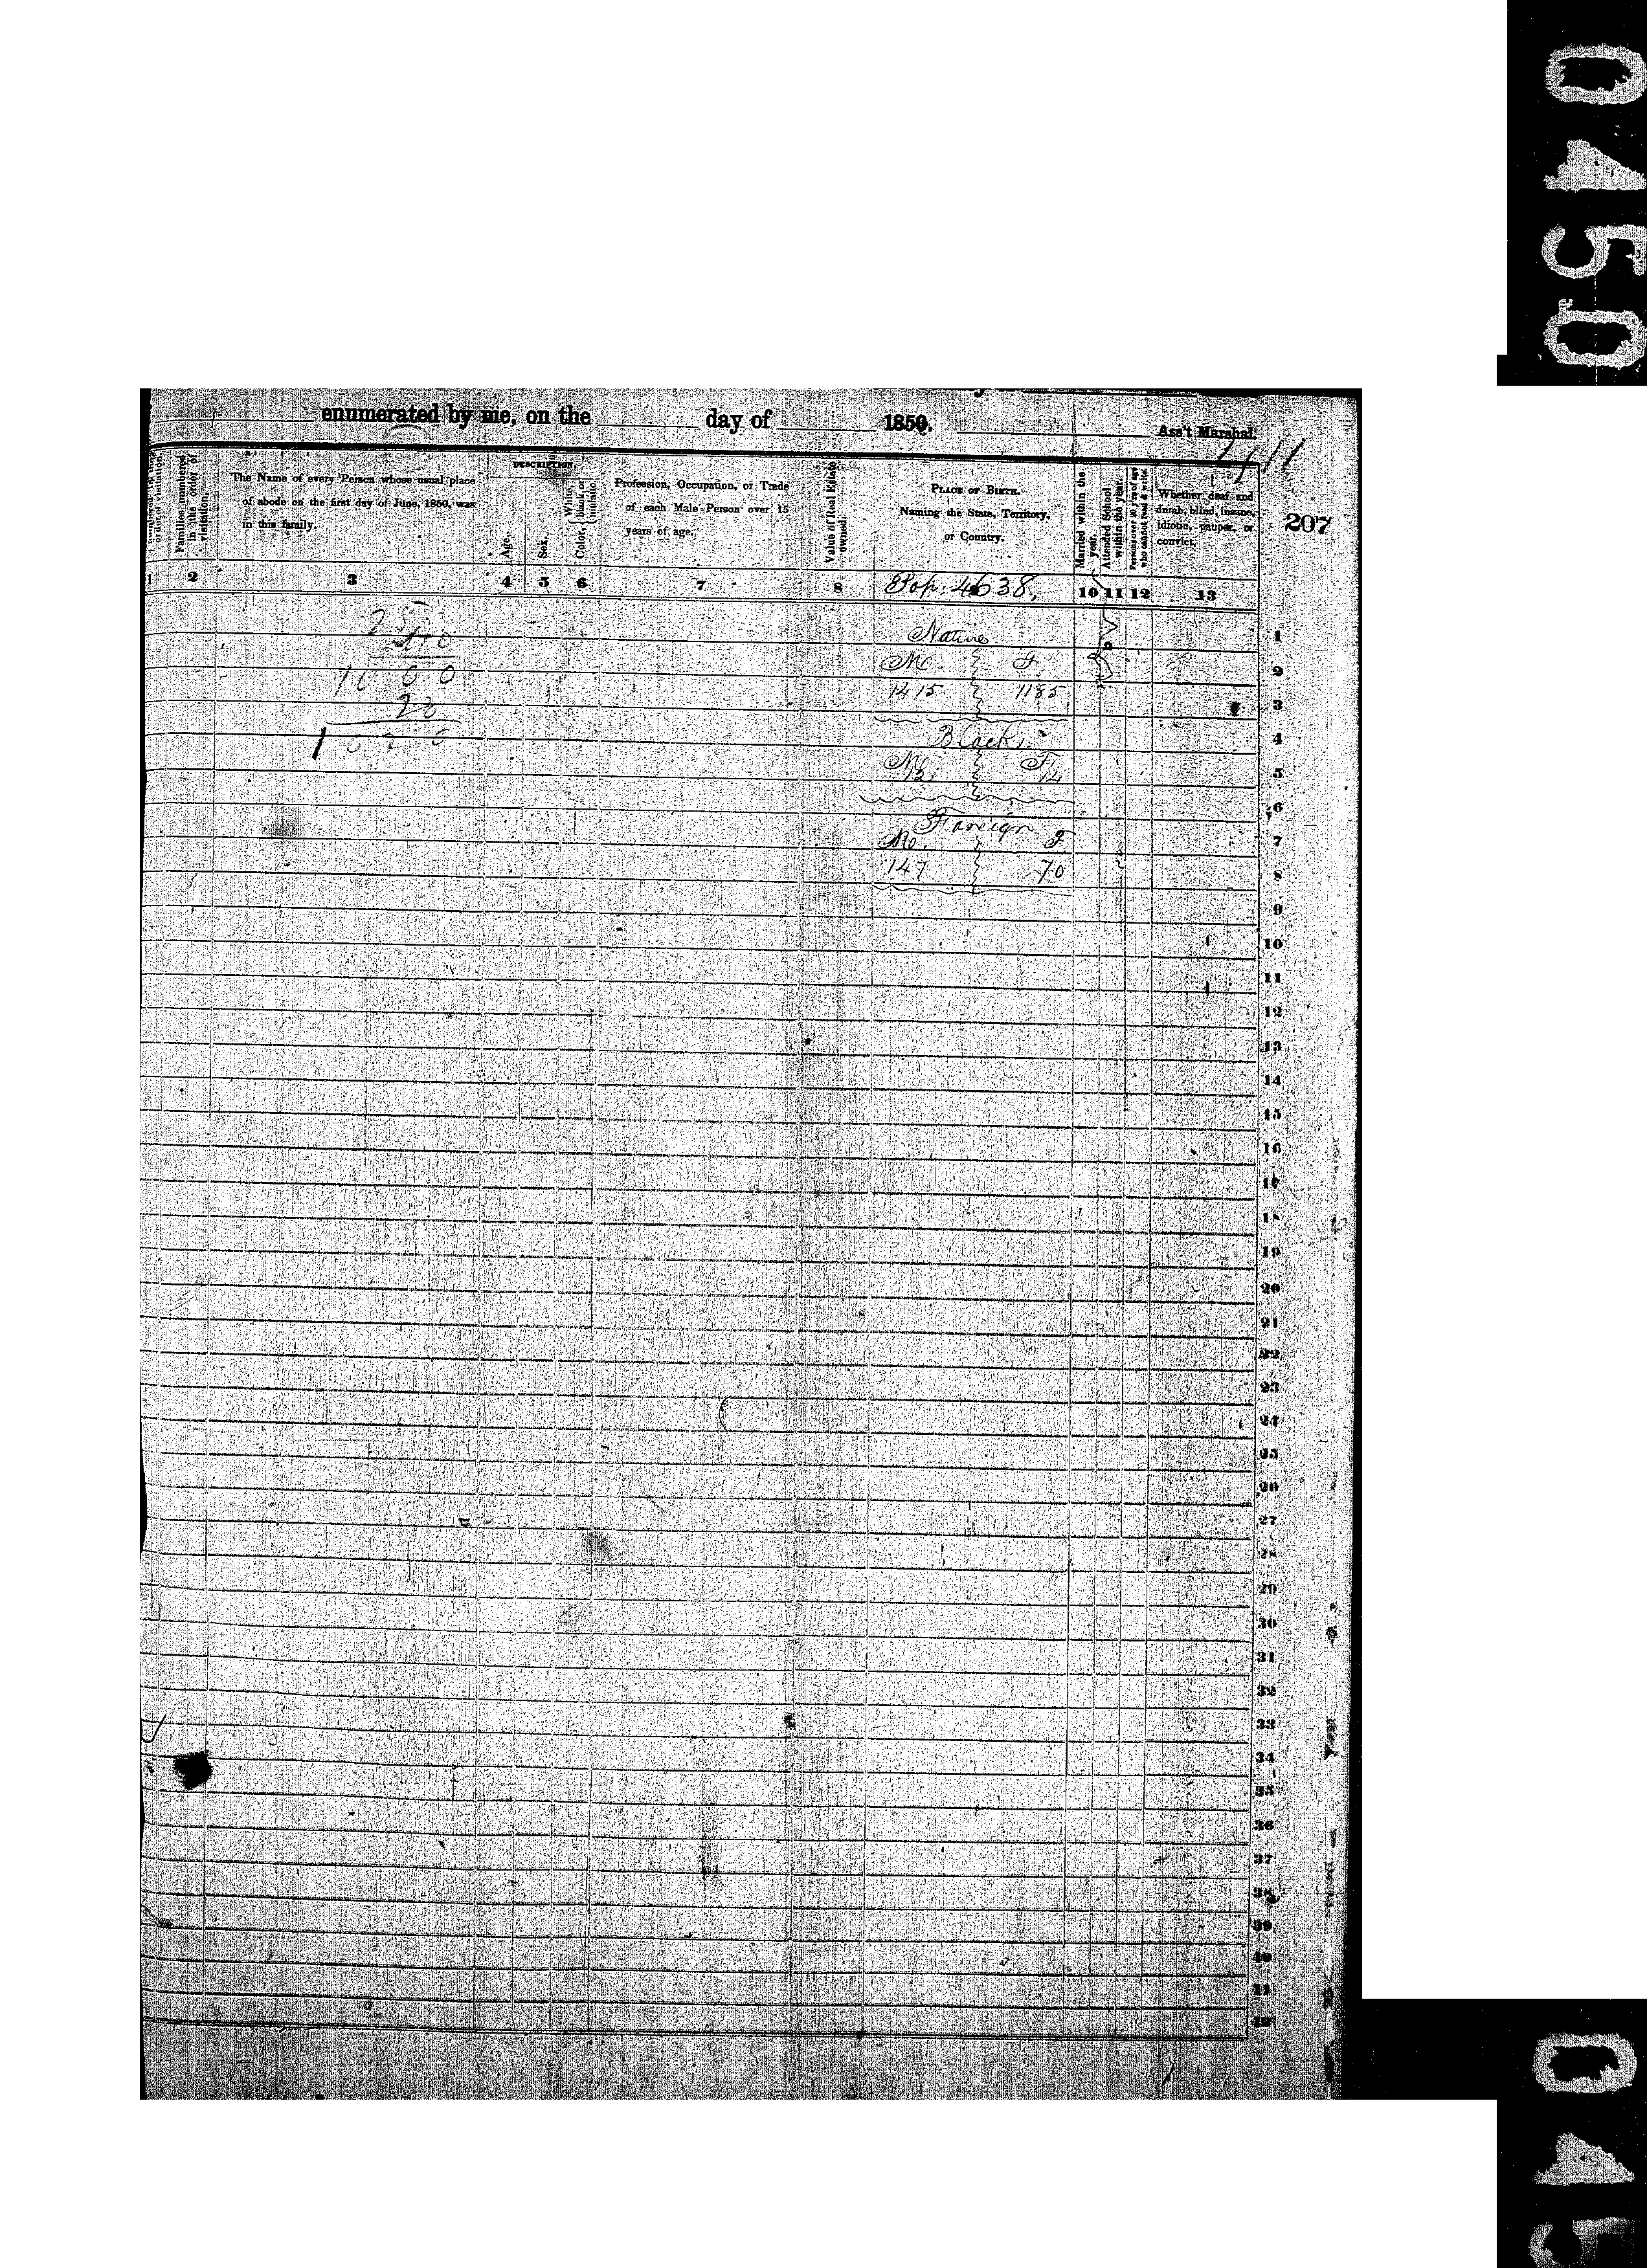 0450
enumerated by me, on the day of 1850. Ass't Marshal.
207
Families numbered in the order of visitation.
The Name of every Person whose usual place
of abode on the first day of June, 1850, was
in this family.
DESCRIPTION.
Age.
Sex.
Color, { White, black, or mulatto.
Profession, Occupation, or Trade
of each Male Person over 15
years of age.
Value of Real Estate owned.
PLACE OF BIRTH.
Naming the State, Territory,
or Country.
Married within the year.
Attended School within the year.
Persons over 20 y'rs of age who cannot read & write.
Whether deaf and
dumb, blind, insane,
idiotic, pauper, or
convict.
1 2 3 4 5 6 7 8 10 11 12 13
Pop: 4638,
Native
M. F
1415 1185
Blacks
M. F.
12 14
Foreign
M. F
147 70
1
2
3
4
5
6
7
8
9
10
11
12
13
14
15
16
17
18
19
20
21
22
23
24
25
26
27
28
29
30
31
32
33
34
35
36
37
38
39
40
41
42
045